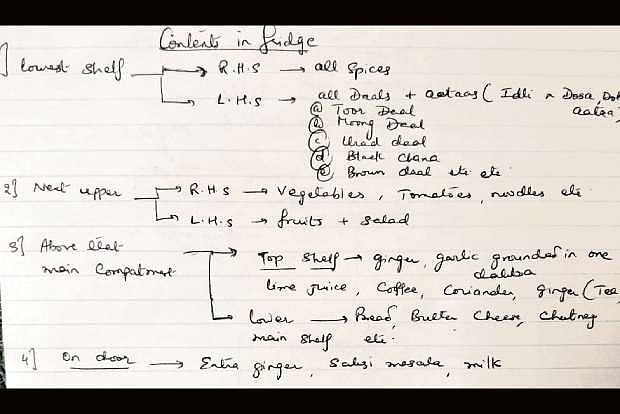 Contents in fridge
1] lowest shelf → R.H.S → all Spices
→ L.H.S → all Daals + aataas ( Idli n Dosa,
aataa)
(a) Toor Daal
(b) Moong Daal
(c) Urad daal
(d) Black Chana
(e) Brown daal etc etc
2] Next upper → R.H.S → Vegetables, Tomatoes, noodles etc.
→ L.H.S → fruits + Salad
3] Above that → Top shelf → ginger, garlic grounded in one
main Compartment dabba
lime juice, Coffee, Coriander, ginger (Tea,
→ lower → Bread, Butter Cheese, Chutney
main shelf etc.
4] On door → Extra ginger, Sabzi masala, milk